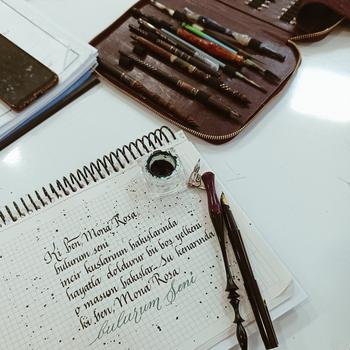 Ki ben, Mona Rosa
bulurum seni
incir kuşlarının bakışlarında
hayatla doldurur bu boş yelkeni
o masum bakışlar. Su kenarında
ki ben, Mona Rosa
bulurum seni